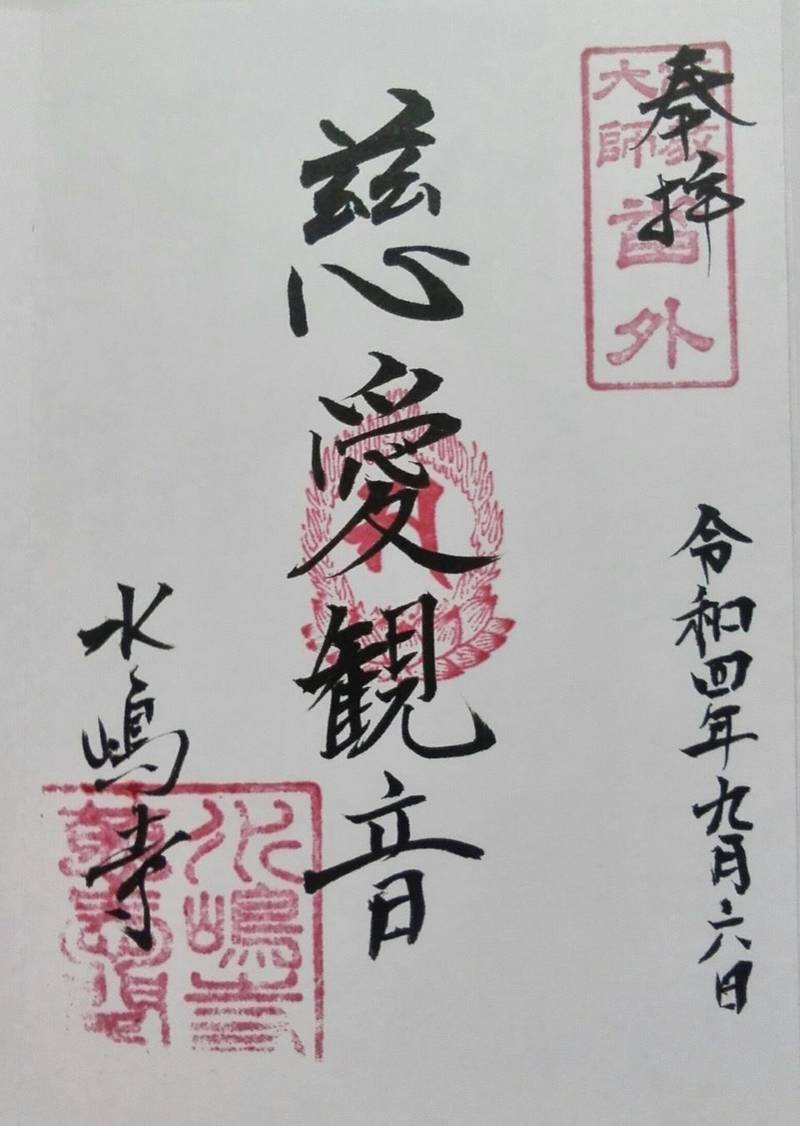 奉拝
大師番外
令和四年九月六日
慈愛観音
水嶋寺
水嶋寺